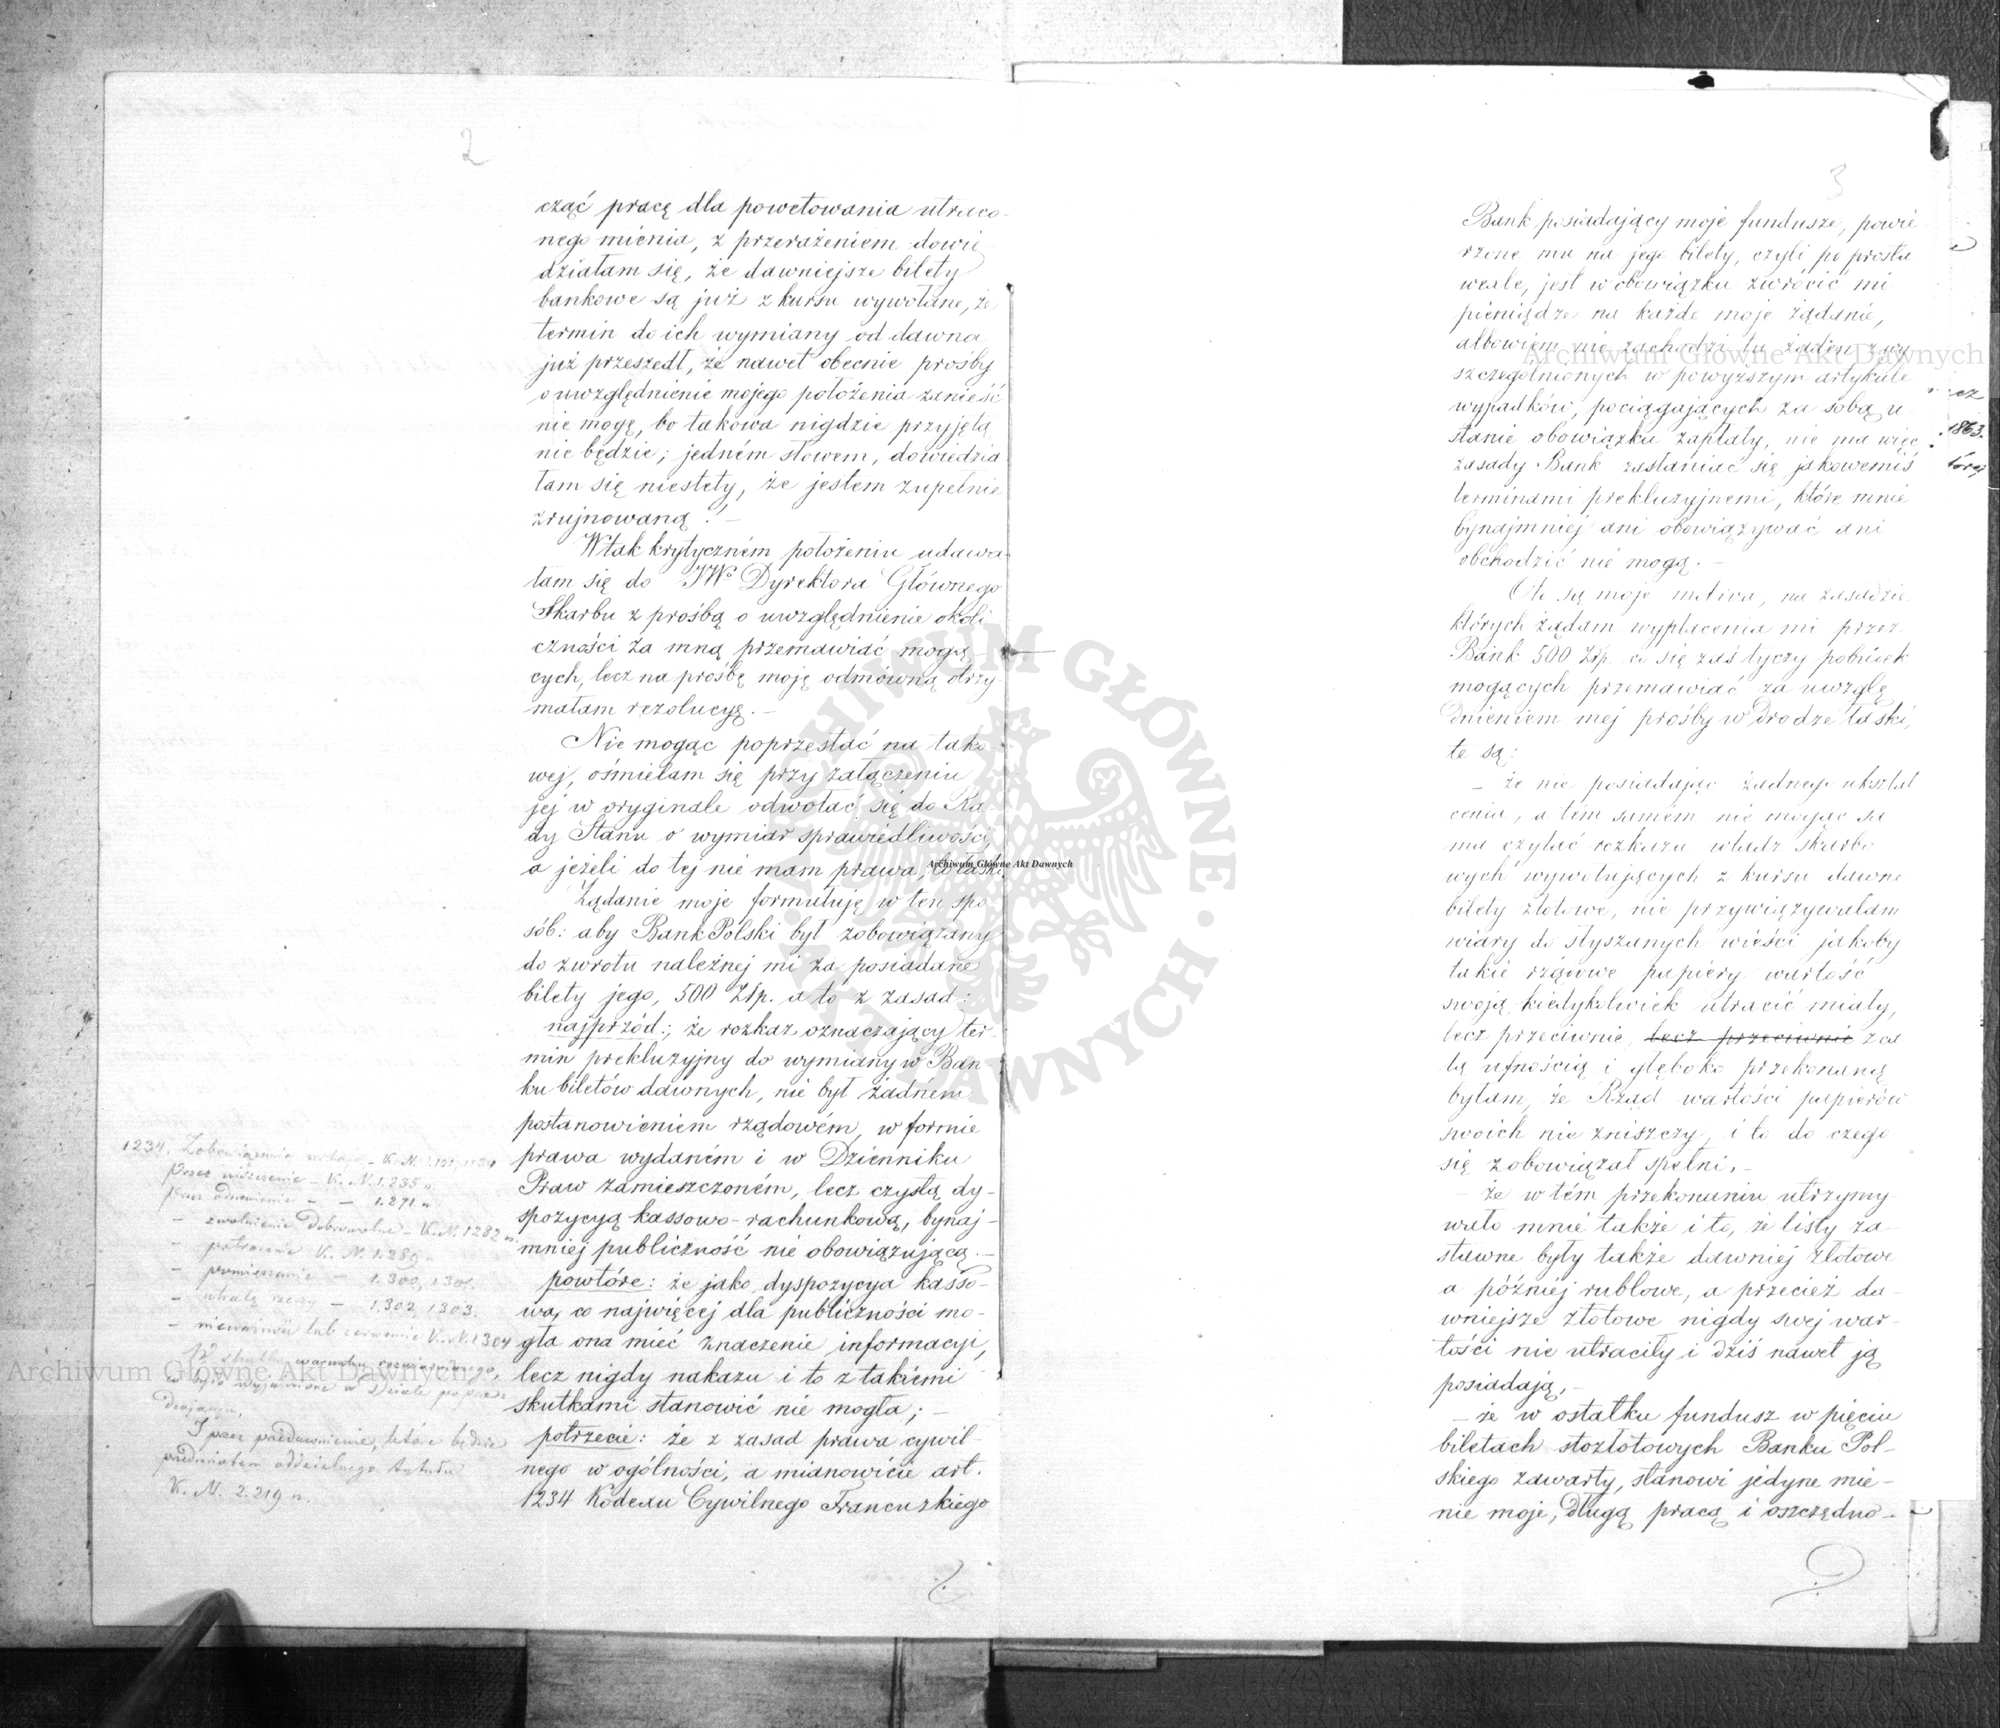 2
cząć pracę dla powetowania utraco-
nego mienia, z przerażeniem dowie
działam się, że dawniejsze bilety
bankowe są już z kursu wywołane, że
termin do ich wymiany od dawna
już przeszedł, że nawet obecnie prośby
o uwzględnienie mojego położenia zanieść
nie mogę, bo takowa nigdzie przyjętą
nie będzie; jedném słowem, dowiedzia
łam się niestety, że jestem zupełnie
zrujnowaną! –
W tak krytyczném położeniu udawa-
łam się do JWo Dyrektora Głównego
Skarbu z prośbą o uwzględnienie okoli
czności za mną przemawiać mogą
cych, lecz na prośbę moję odmówną otrzy-
małam rezolucyę. –
Nie mogąc poprzestać na tako
wej, ośmielam się przy załączeniu
jej w oryginale odwołać się do Ra
dy Stanu o wymiar sprawiedliwości,
a jeżeli do tej nie mam prawa, to łaski.
Żądanie moje formułuję w ten spo
sób: aby Bank Polski był zobowiązany
do zwrotu należnej mi za posiadane
bilety jego, 500 Złp. a to z zasad:
najprzód: że rozkaz oznaczający ter-
min prekluzyjny do wymiany w Ban-
ku biletów dawnych, nie był żadném
postanowieniem rządowém, w formie
prawa wydaném i w Dzienniku
Praw zamieszczoném, lecz czystą dy-
spozycyą kassowo-rachunkową, bynaj-
mniej publiczność nie obowiązującą. –
powtóre: że jako dyspozycya kasso-
wa, co najwięcej dla publiczności mo-
gła ona mieć znaczenie informacyi,
lecz nigdy nakazu i to z takiemi
skutkami stanowić nie mogła; –
potrzecie: że z zasad prawa cywil-
nego w ogólności, a mianowicie art.
1234 Kodexu Cywilnego Francuzkiego
1234. Zobowiązania K.N.
przez uiszczenie – K.N. 1.235 n.
przez odnowienie – – 1.271 n
– zwolnienie dobrowolne – K.N. 1282 n.
– potrącenie K.N. 1.289 n
– pomieszanie – 1.300, 1301.
– utratę rzeczy – 1.302, 1303.
– nieważność lub zerwanie K.N. 1304
W skutku warunku rozwiązującego,
co było wyjaśnione w dziale poprze-
dzającym,
I przez przedawnienie, które będzie
przedmiotem oddzielnego tytułu
K.N. 2.219 n.
3
Bank posiadający moje fundusze, powie
rzone mu na jego bilety, czyli po prostu
wexle, jest w obowiązku zwrócić mi
pieniądze na każde moje żądanie,
albowiem nie zachodzi tu żaden z wy
szczególnionych w powyższym artykule
wypadków, pociągających za sobą u-
stanie obowiązku zapłaty, nie ma więc
zasady Bank zasłaniać się jakowemiś
terminami prekluzyjnemi, które mnie
bynajmniej ani obowiązywać ani
obchodzić nie mogą. –
Oto są moje motiva, na zasadzie
których żądam wypłacenia mi przez
Bank 500 Złp. co się zaś tyczy pobudek
mogących przemawiać za uwzglę
dnieniem mej prośby w drodze łaski,
te są:
– że nie posiadając żadnego ukształ
cenia, a tém samém nie mogąc sa
ma czytać rozkazu władz skarbo
wych wywołujących z kursu dawne
bilety złotowe, nie przywiązywałam
wiary do słyszanych wieści jakoby
takie rządowe papiery wartość
swoją kiedykolwiek utracić miały,
lecz przeciwnie, lecz przeciwnie z ca
łą ufnością i głęboko przekonaną
byłam, że Rząd wartości papierów
swoich nie zniszczy, i to do czego
się zobowiązał spełni, –
– że w tém przekonaniu utrzymy-
wało mnie także i to, że listy za-
stawne były także dawniej złotowe
a później rublowe, a przecież da-
wniejsze złotowe nigdy swej war-
tości nie utraciły i dziś nawet ją
posiadają, –
– że w ostatku fundusz w pięciu
biletach stozłotowych Banku Pol-
skiego zawarty, stanowi jedyne mie-
nie moje, długą pracą i oszczędno-
cz
1863.
tórej
Archiwum Główne Akt Dawnych
Archiwum Główne Akt Dawnych
Archiwum Główne Akt Dawnych
ARCHIWUM GŁÓWNE AKT DAWNYCH